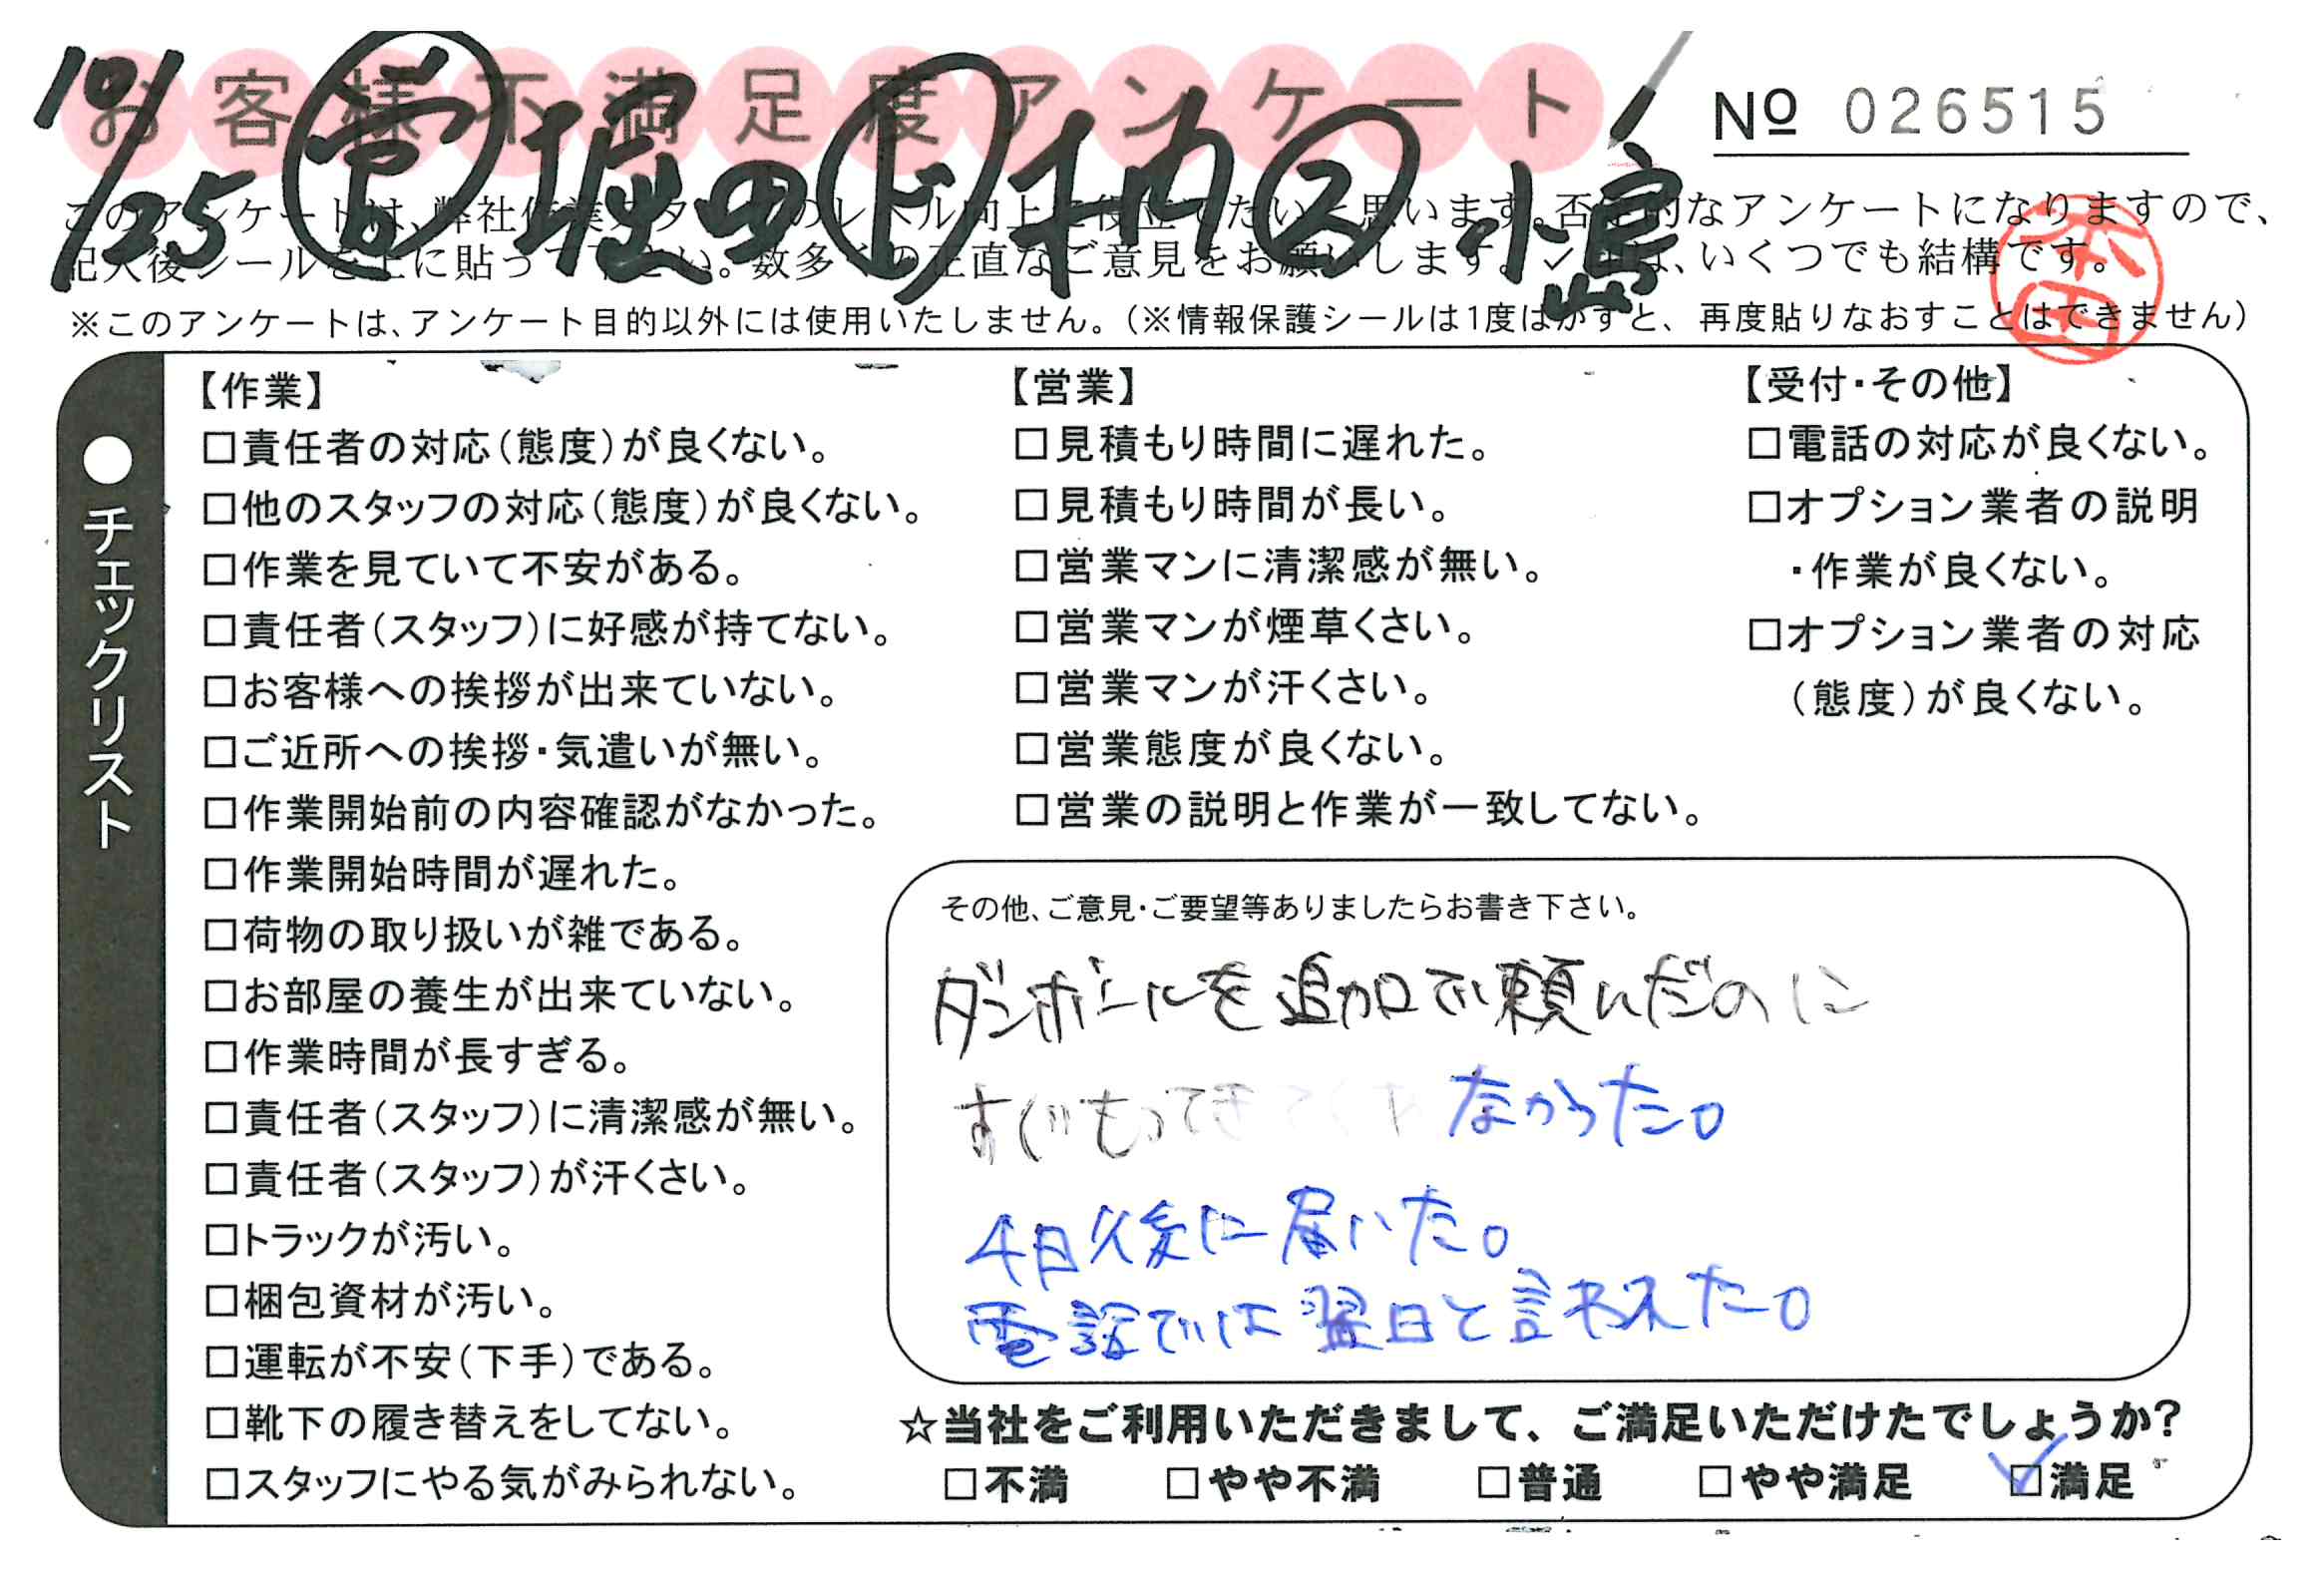 お客様不満足度アンケート
No 026515
10/25 営 堀田 ド 2 小島
このアンケートは、弊社作業スタッフのレベル向上に役立てたいと思います。否定的なアンケートになりますので、
記入後シールを上に貼って下さい。数多くの正直なご意見をお願いします。✓印は、いくつでも結構です。
※このアンケートは、アンケート目的以外には使用いたしません。(※情報保護シールは1度はがすと、再度貼りなおすことはできません)
本田
●チェックリスト
【作業】
□責任者の対応(態度)が良くない。
□他のスタッフの対応(態度)が良くない。
□作業を見ていて不安がある。
□責任者(スタッフ)に好感が持てない。
□お客様への挨拶が出来ていない。
□ご近所への挨拶・気遣いが無い。
□作業開始前の内容確認がなかった。
□作業開始時間が遅れた。
□荷物の取り扱いが雑である。
□お部屋の養生が出来ていない。
□作業時間が長すぎる。
□責任者(スタッフ)に清潔感が無い。
□責任者(スタッフ)が汗くさい。
□トラックが汚い。
□梱包資材が汚い。
□運転が不安(下手)である。
□靴下の履き替えをしてない。
□スタッフにやる気がみられない。
【営業】
□見積もり時間に遅れた。
□見積もり時間が長い。
□営業マンに清潔感が無い。
□営業マンが煙草くさい。
□営業マンが汗くさい。
□営業態度が良くない。
□営業の説明と作業が一致してない。
【受付・その他】
□電話の対応が良くない。
□オプション業者の説明
・作業が良くない。
□オプション業者の対応
(態度)が良くない。
その他、ご意見・ご要望等ありましたらお書き下さい。
ダンボールを追加で頼んだのに
すぐもってきてくれなかった。
4日後に届いた。
電話では翌日と言われた。
☆当社をご利用いただきまして、ご満足いただけたでしょうか?
□不満 □やや不満 □普通 □やや満足 ☑満足